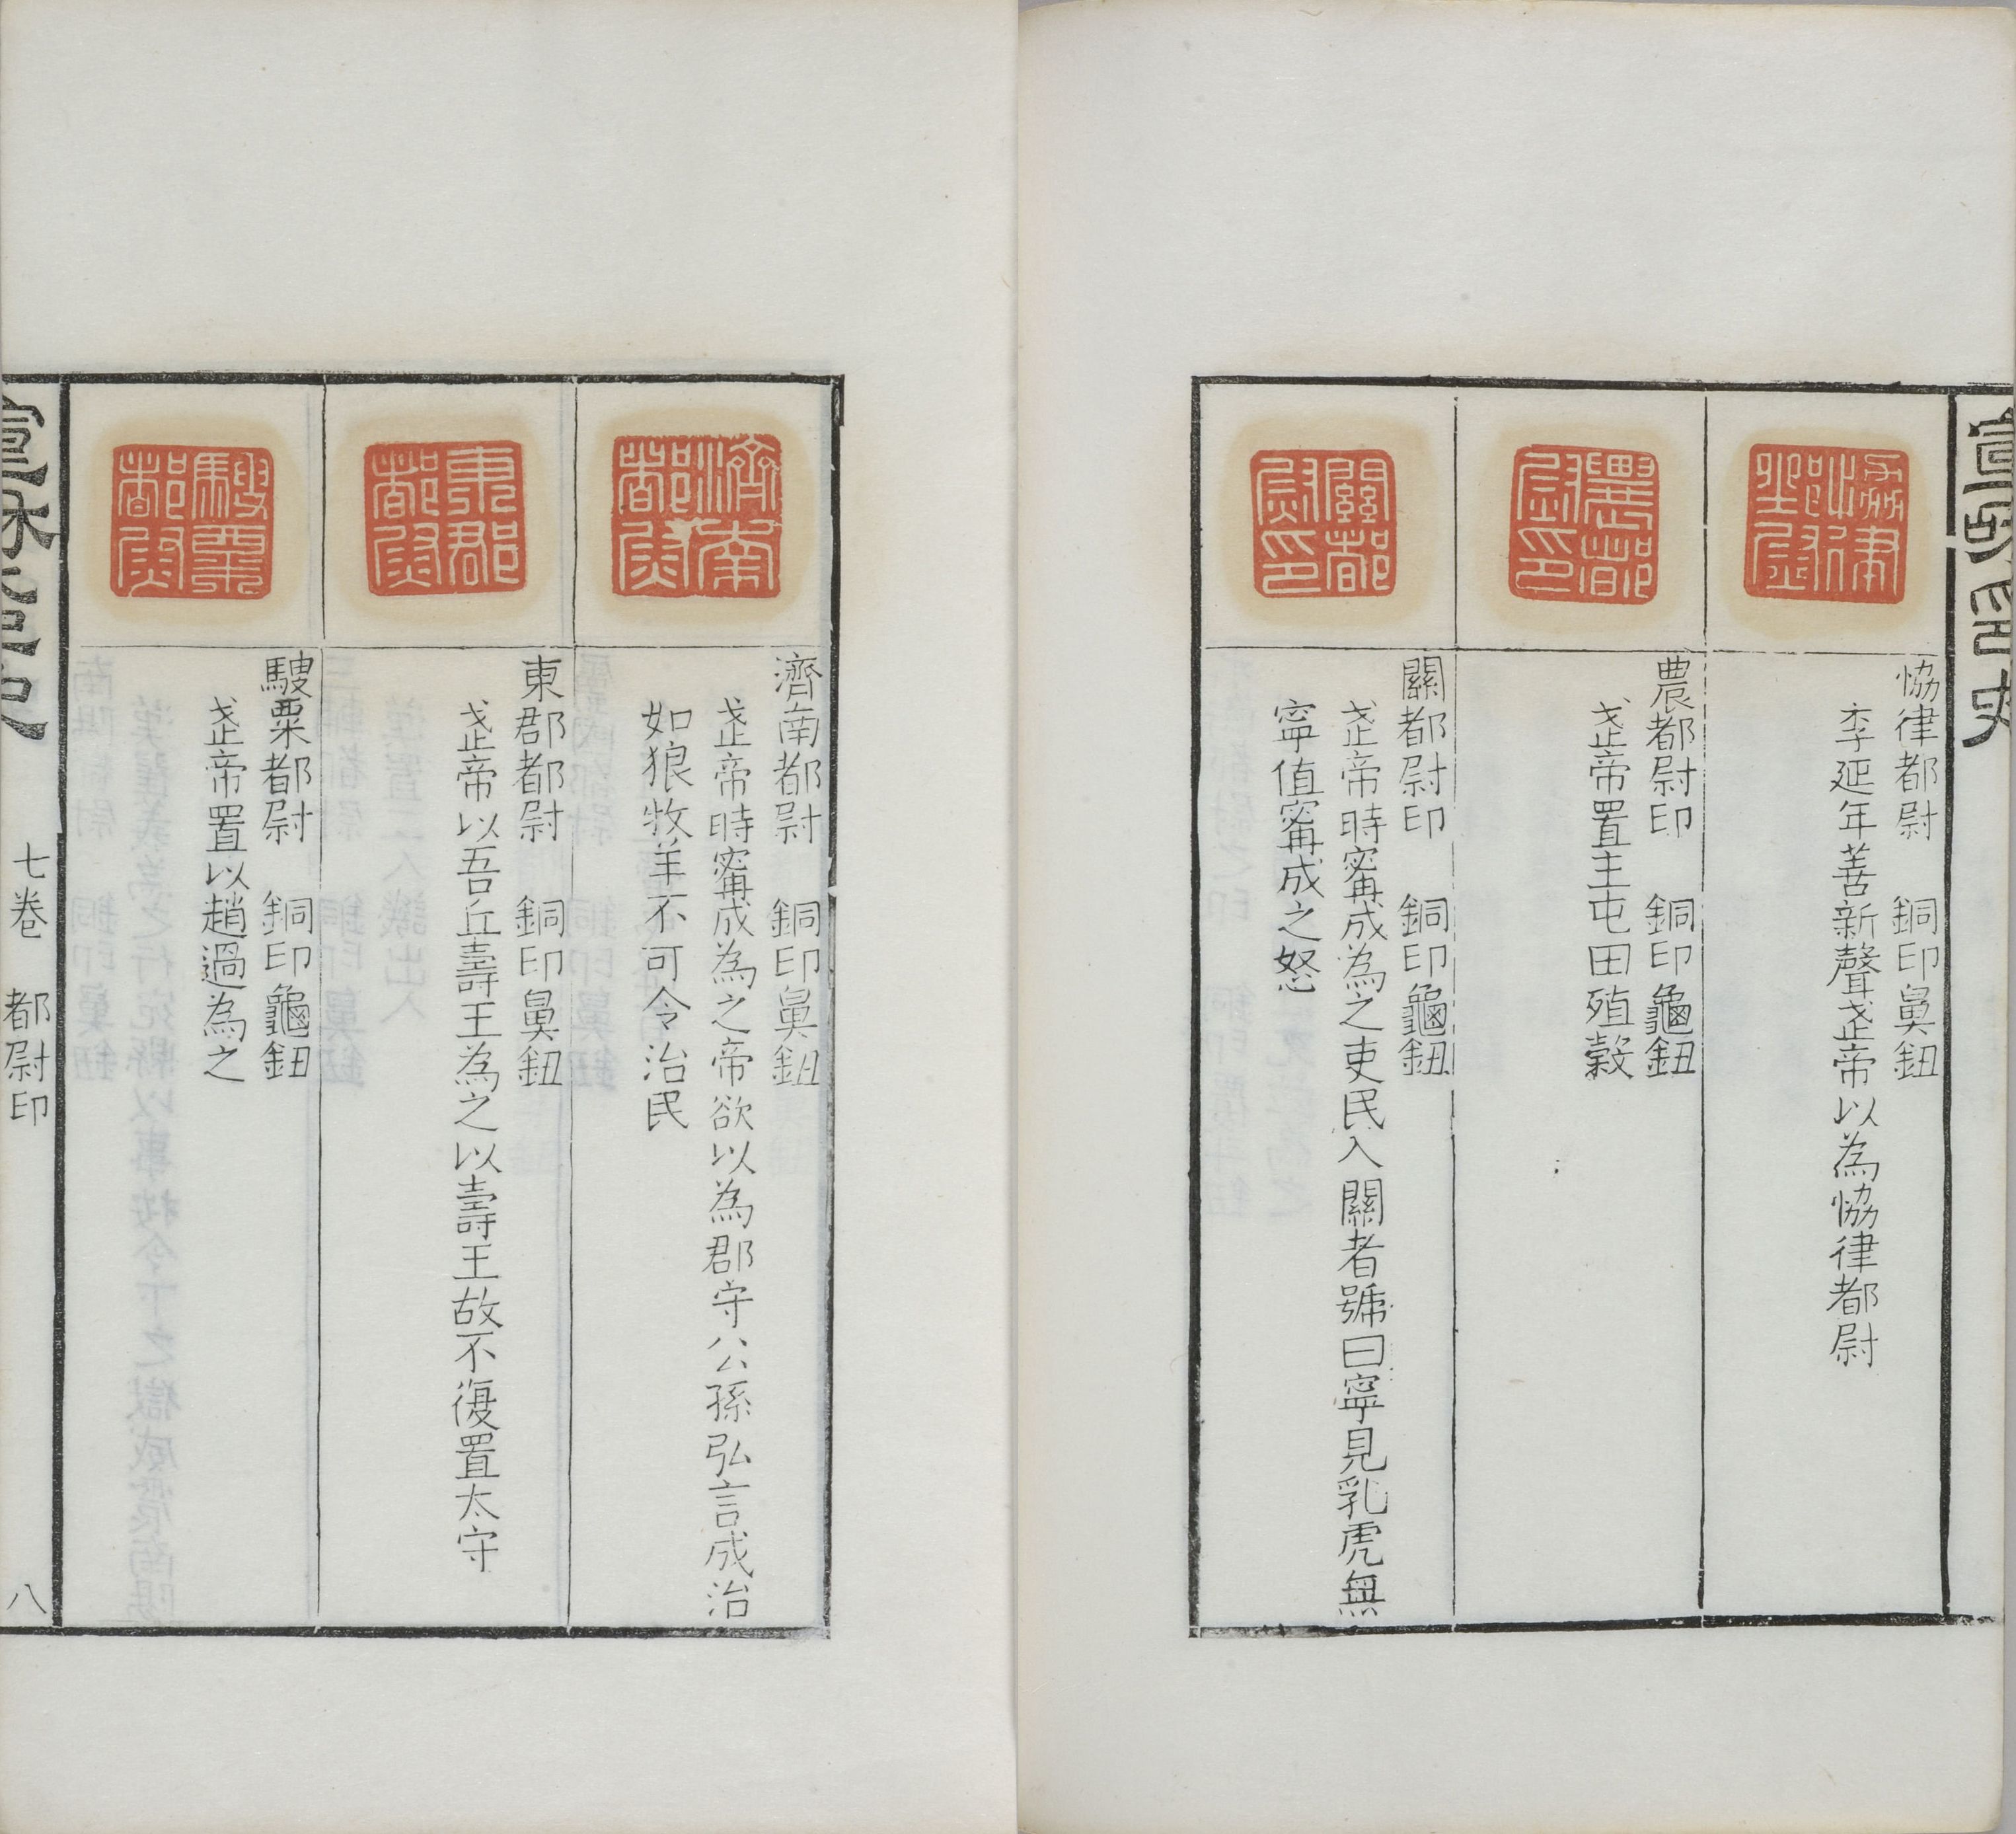 宣和印史
協律都尉
恊律都尉 銅印鼻鈕
李延年善新聲武帝以為恊律都尉
農都尉印
農都尉印 銅印龜鈕
武帝置主屯田殖穀
關都尉印
關都尉印 銅印龜鈕
武帝時甯成為之吏民入關者號曰寧見乳虎無
寧值甯成之怒
濟南都尉
濟南都尉 銅印鼻鈕
武帝時甯成為之帝欲以為郡守公孫弘言成治
如狼牧羊不可令治民
東郡都尉
東郡都尉 銅印鼻鈕
武帝以吾丘壽王為之以壽王故不復置太守
騪粟都尉
騪粟都尉 銅印龜鈕
武帝置以趙過為之
宣和印史 七卷 都尉印 八